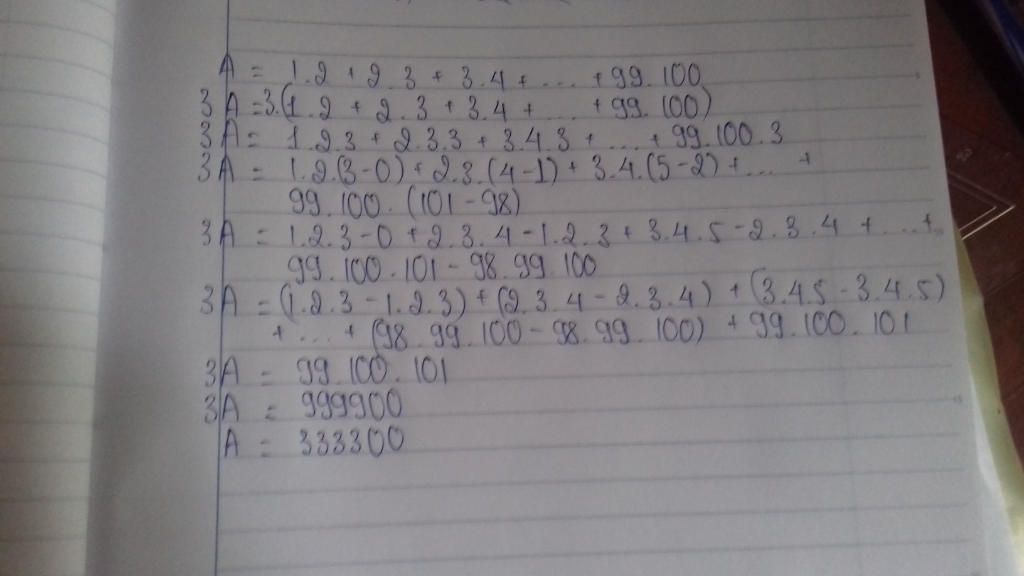 A = 1.2 + 2.3 + 3.4 + ... + 99.100
3A = 3.(1.2 + 2.3 + 3.4 + ... + 99.100)
3A = 1.2.3 + 2.3.3 + 3.4.3 + ... + 99.100.3
3A = 1.2.(3-0) + 2.3.(4-1) + 3.4.(5-2) + ... +
99.100.(101-98)
3A = 1.2.3 - 0 + 2.3.4 - 1.2.3 + 3.4.5 - 2.3.4 + ... +
99.100.101 - 98.99.100
3A = (1.2.3 - 1.2.3) + (2.3.4 - 2.3.4) + (3.4.5 - 3.4.5)
+ ... + (98.99.100 - 98.99.100) + 99.100.101
3A = 99.100.101
3A = 999900
A = 333300